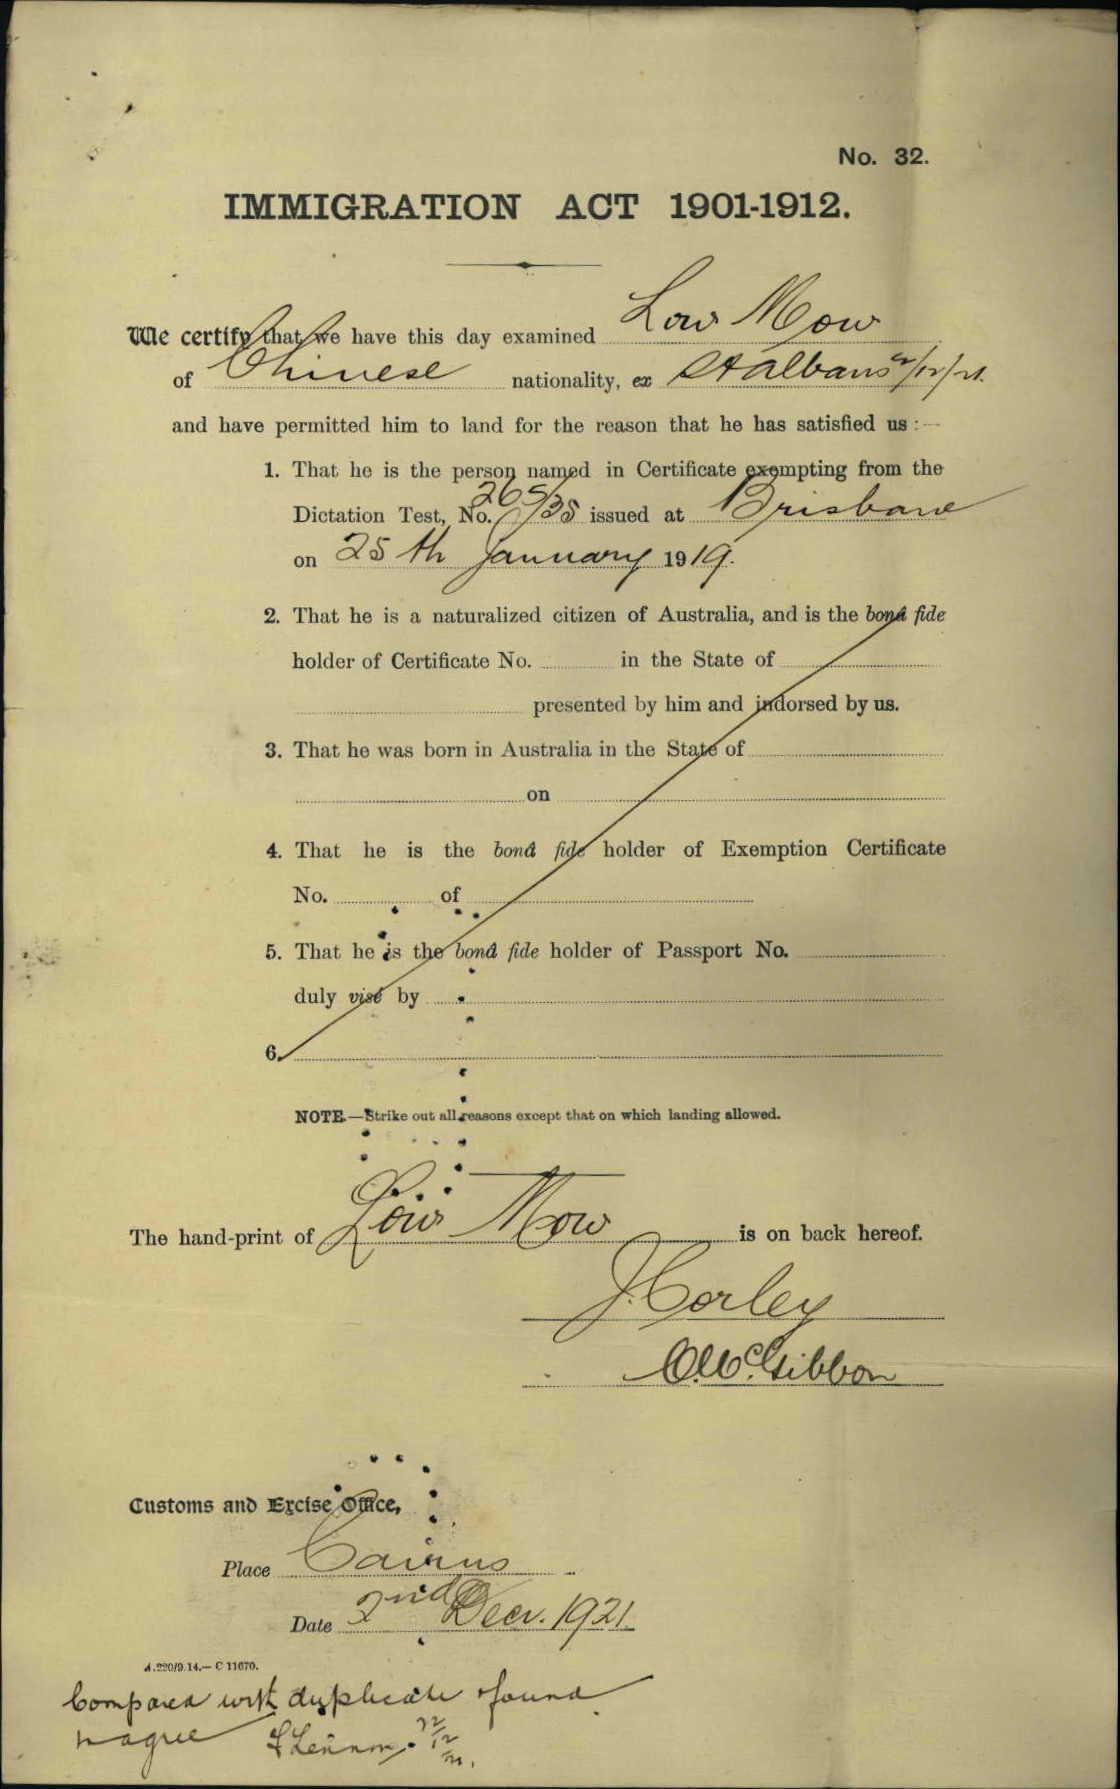 No. 32.
IMMIGRATION ACT 1901-1912.
We certify that we have this day examined Low Mow
of Chinese nationality, ex St Albans 2/12/21.
and have permitted him to land for the reason that he has satisfied us :—
1. That he is the person named in Certificate exempting from the
Dictation Test, No. 265/35 issued at Brisbane
on 25th January 1919.
2. That he is a naturalized citizen of Australia, and is the bonâ fide
holder of Certificate No. in the State of
presented by him and indorsed by us.
3. That he was born in Australia in the State of
on
4. That he is the bonâ fide holder of Exemption Certificate
No. of
5. That he is the bonâ fide holder of Passport No.
duly visé by
6.
NOTE.—Strike out all reasons except that on which landing allowed.
The hand-print of Low Mow is on back hereof.
J. Corley
McGibbon
Customs and Excise Office,
Place Cairns
Date 2nd Decr. 1921.
A.220/9.14.—C 11670.
Compared with duplicate & found
to agree Lennon 22/12/21.